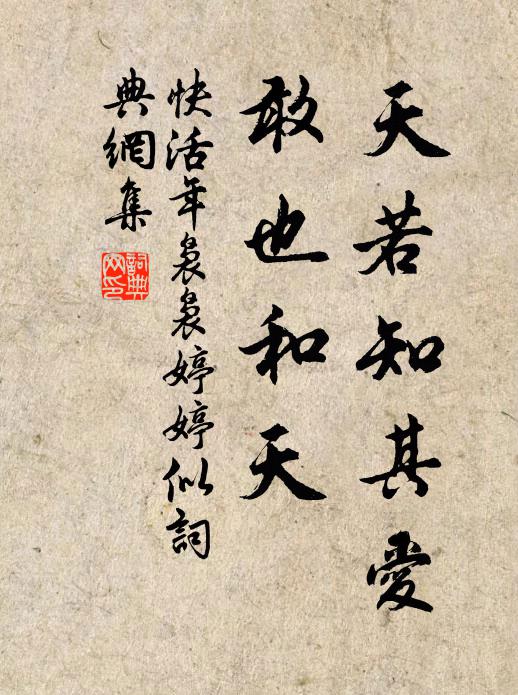 天若知其愛
敢也和天
快活年裊裊婷婷似詞
典網集
詞典网印